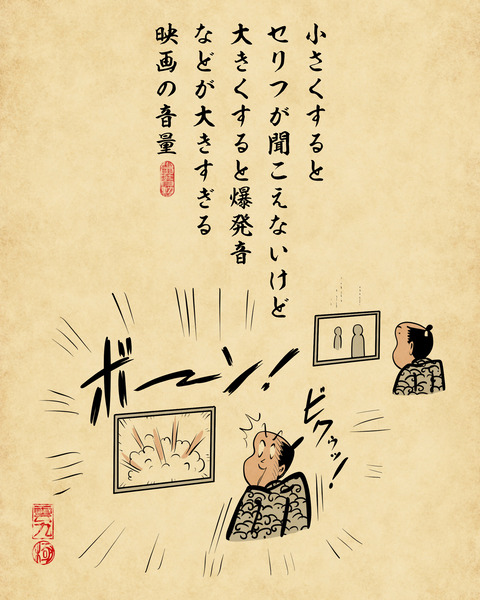 小さくすると
セリフが聞こえないけど
大きくすると爆発音
などが大きすぎる
映画の音量
ボーーン!
ビクゥッ!